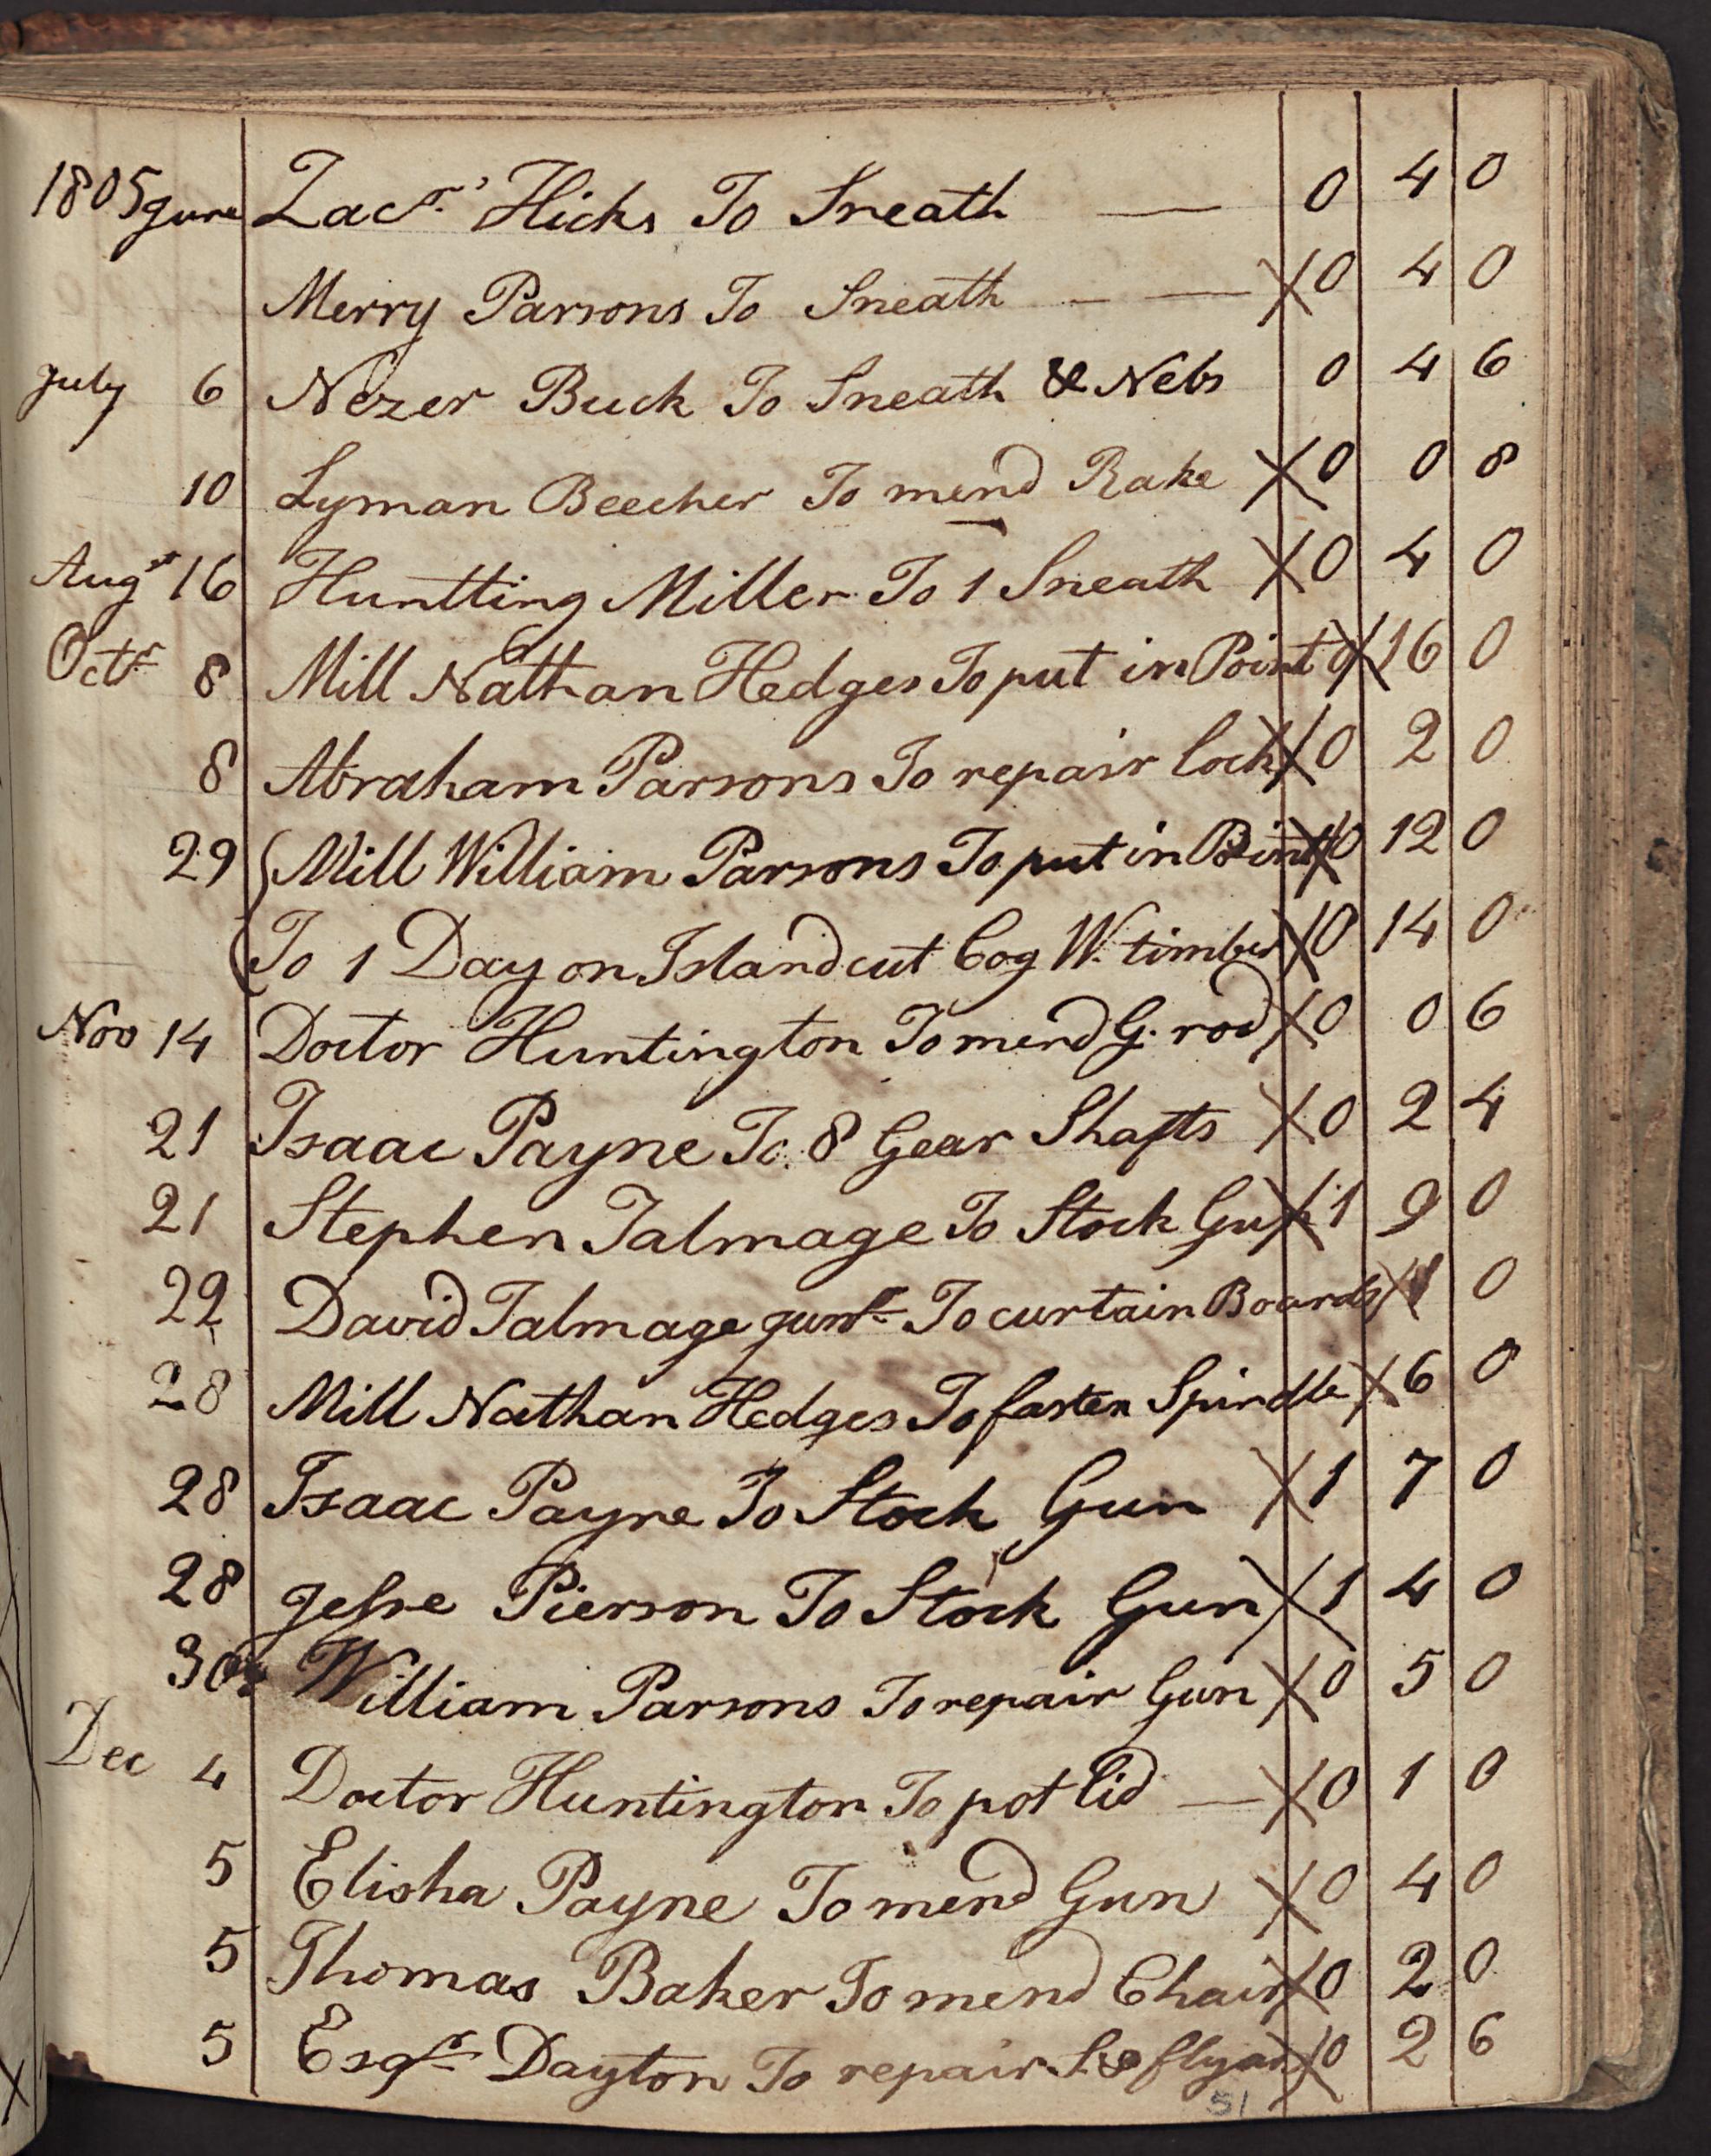 1805 June Zacr. Hicks To Sneath — 0 4 0
Merry Parsons To Sneath — — X 0 4 0
July 6 Nezer Buck To Sneath & Nebs 0 4 6
10 Lyman Beecher To mend Rake X 0 0 8
Augst 16 Huntting Miller To 1 Sneath X 0 4 0
Octr 8 Mill Nathan Hedges To put in Point 0 X 16 0
8 Abraham Parsons To repair lock X 0 2 0
29 Mill William Parsons To put in Point X 0 12 0
To 1 Day on Island cut Cog W. timber X 0 14 0
Nov 14 Doctor Huntington To mend G. rod X 0 0 6
21 Isaac Payne To 8 Gear Shafts X 0 2 4
21 Stephen Talmage To Stock Gun X 1 9 0
22 David Talmage junr To curtain Boards X 0
28 Mill Nathan Hedges To fasten Spindle X 6 0
28 Isaac Payne To Stock Gun X 1 7 0
28 Jesse Pierson To Stock Gun X 1 4 0
30 William Parsons To repair Gun X 0 5 0
Dec 4 Doctor Huntington To pot lid — X 0 1 0
5 Elisha Payne To mend Gun X 0 4 0
5 Thomas Baker To mend Chair X 0 2 0
5 Esqr Dayton To repair X 0 2 6
51